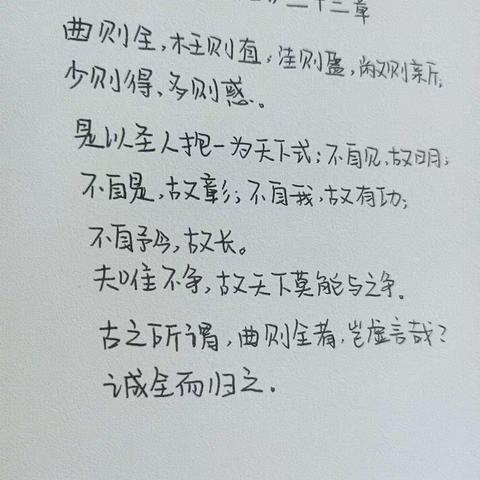 二十二章
曲则全，枉则直，洼则盈，敝则新；
少则得、多则惑。
是以圣人抱一为天下式；不自见，故明；
不自是，故彰；不自我，故有功；
不自矜，故长。
夫唯不争，故天下莫能与之争。
古之所谓，曲则全者，岂虚言哉？
诚全而归之．